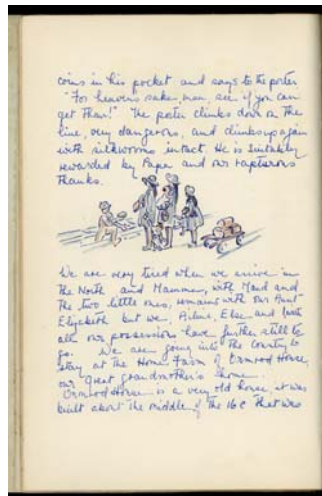 coins in his pocket and says to the porter
"For heavens sake, man, see if you can
get them!" The porter climbs down on the
line, very dangerous, and climbs up again
with silkworms intact. He is suitably
rewarded by Papa and our rapturous
thanks.
We are very tired when we arrive in
the North and Mamma, with Maud and
the two little ones, remains with our Aunt
Elizabeth but we, Aileen, Else and with
all our possessions have further still to
go. We are going into the Country to
stay at the Home Farm of Ormrod House,
our Great grandmother's home.
Ormrod House is a very old house, it was
built about the middle of the 16c that was